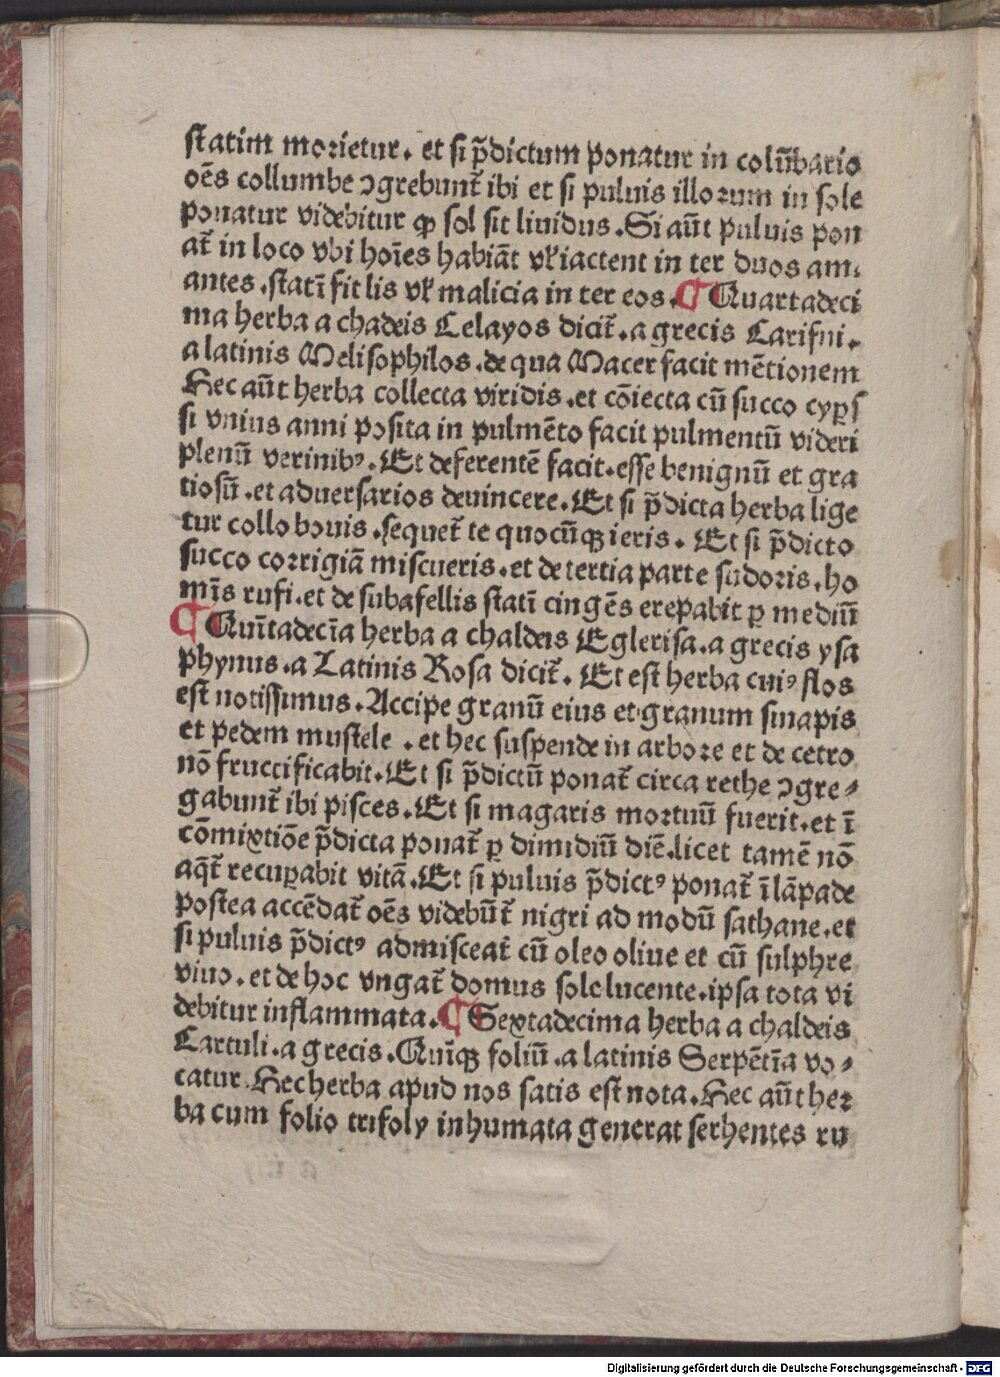 ſtatim morietur. et ſi p̄dictum ponatur in colūbaris
oēs collumbe ꝯgrebunt̄ ibi et ſi puluis illorum in ſole
ponatur videbitur ꝙ ſol ſit liuidus. Si aūt puluis pon
at̄ in loco vbi hoīes habiāt vl̓ iactent in ter duos am-
antes. ſtatī fit lis vl̓ malicia in ter eos. ¶ Quartadeci
ma herba a chadeis Celayos dicit̄. a grecis Carifni.
a latinis Meliſophilos. de qua Macer facit mētionem
Hec aūt herba collecta viridis. et cōiecta cū ſucco cyp̲ſ
ſi vnius anni poſita in pulmēto facit pulmentū videri
plenū verinibꝰ. Et deferentē facit. eſſe benignū et gra
tioſū. et aduerſarios deuincere. Et ſi p̄dicta herba lige
tur collo bouis. ſequet̄ te quocūqꝫ ieris. Et ſi p̄dicto
ſucco corrigiā miſcueris. et de tertia parte ſudoris. ho
mīs rufi. et de ſubafellis ſtatī cingēs erepabit ꝑ mediū
¶ Quītadecīa herba a chaldeis Egleriſa. a grecis yſa
phynus. a Latinis Roſa dicit̄. Et eſt herba cuiꝰ flos
eſt notiſſimus. Accipe granū eius et granum ſinapis
et pedem muſtele . et hec ſuſpende in arbore et de cetro
nō fructificabit. Et ſi p̄dictū ponat̄ circa rethe ꝯgre⸗
gabunt̄ ibi piſces. Et ſi magaris mortuū fuerit. et ī
cōmixtiōe p̄dicta ponat̄ ꝑ dimidiū diē. licet tamē nō
aq̄t̄ recuꝑabit vitā. Et ſi puluis p̄dictꝰ ponat̄ ī lāpade
poſtea accēdat̄ oēs videbūt̄ nigri ad modū ſathane. et
ſi puluis p̄dictꝰ admiſceat̄ cū oleo oliue et cū ſulphre
viuo. et de hoc vngat̄ domus ſole lucente. ipſa tota vi
debitur inflammata. ¶ Sextadecima herba a chaldeis
Cartuli. a grecis. Quīqꝫ foliū. a latinis Serpētīa vo⸗
catur. Hec herba apud nos ſatis eſt nota. Hec aūt her
ba cum folio trifoly inhumata generat ſerhentes ru
Digitalisierung gefördert durch die Deutsche Forschungsgemeinschaft - DFG